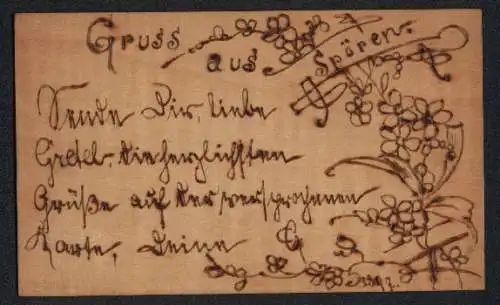 Gruss
aus
Spören.
Sende Dir, liebe
Gretel, die herzlichsten
Grüße auf der versprochenen
Karte, Deine G